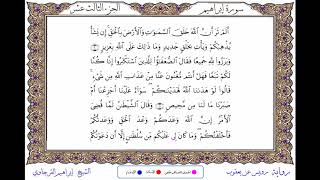 سورة إبراهيم الجزء الثالث عشر
أَلَمْ تَرَ أَنَّ ٱللَّهَ خَلَقَ ٱلسَّمَٰوَٰتِ وَٱلْأَرْضَ بِٱلْحَقِّ إِن يَشَأْ
يُذْهِبْكُمْ وَيَأْتِ بِخَلْقٍ جَدِيدٍ وَمَا ذَٰلِكَ عَلَى ٱللَّهِ بِعَزِيزٍ
وَبَرَزُوا۟ لِلَّهِ جَمِيعًا فَقَالَ ٱلضُّعَفَٰٓؤُا۟ لِلَّذِينَ ٱسْتَكْبَرُوٓا۟ إِنَّا كُنَّا
لَكُمْ تَبَعًا فَهَلْ أَنتُم مُّغْنُونَ عَنَّا مِنْ عَذَابِ ٱللَّهِ مِن شَىْءٍ
قَالُوا۟ لَوْ هَدَىٰنَا ٱللَّهُ لَهَدَيْنَٰكُمْ سَوَآءٌ عَلَيْنَآ أَجَزِعْنَآ أَمْ
صَبَرْنَا مَا لَنَا مِن مَّحِيصٍ وَقَالَ ٱلشَّيْطَٰنُ لَمَّا قُضِىَ
ٱلْأَمْرُ إِنَّ ٱللَّهَ وَعَدَكُمْ وَعْدَ ٱلْحَقِّ وَوَعَدتُّكُمْ
فَأَخْلَفْتُكُمْ وَمَا كَانَ لِى عَلَيْكُم مِّن سُلْطَٰنٍ إِلَّآ أَن دَعَوْتُكُمْ
رواية رويس عن يعقوب